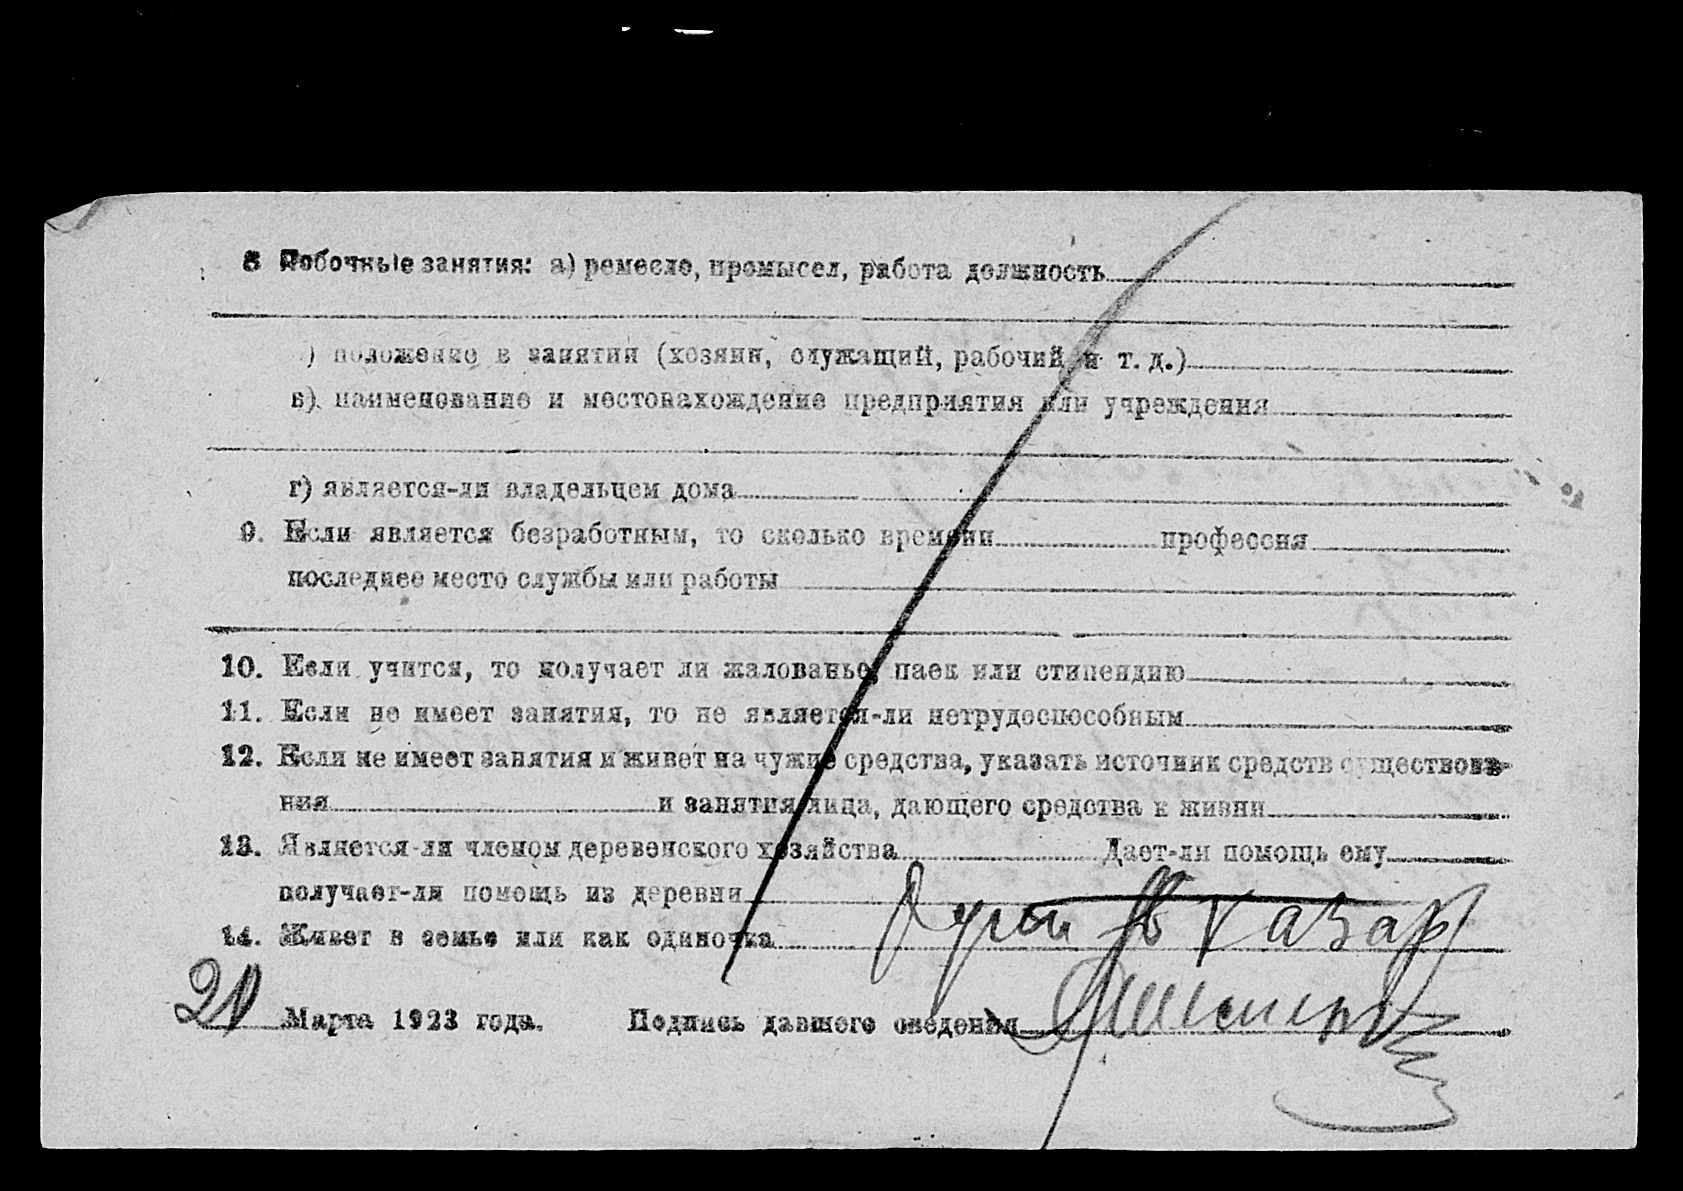 8 Побочные занятия: а) ремесло, промысел, работа должность
) положение в занятии (хозяин, служащий, рабочий и т. д.)
в) наименование и местонахождение предприятия или учреждения
г) является-ли владельцем дома
9. Если является безработным, то сколько времени профессия
последнее место службы или работы
10. Если учится, то получает ли жалованье, паек или стипендию
11. Если не имеет занятия, то не является-ли нетрудоспособным
12. Если не имеет занятия и живет на чужие средства, указать источник средств существова-
ния и занятия лица, дающего средства к жизни
13. Является-ли членом деревенского хозяйства Дает-ли помощь ему
получает-ли помощь из деревни
14. Живет в семье или как одиночка
20 Марта 1923 года. Подпись давшего сведения